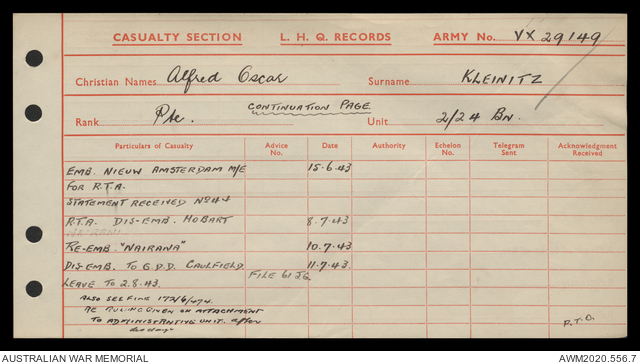 CASUALTY SECTION L. H. Q. RECORDS ARMY No. VX 29149
Christian Names Alfred Oscar Surname KLEINITZ
CONTINUATION PAGE
Rank Pte. Unit 2/24 BN.
Particulars of Casualty Advice No. Date Authority Echelon No. Telegram Sent Acknowledgment Received
EMB. NIEUW AMSTERDAM M/E 15.6.43
FOR R.T.A.
STATEMENT RECEIVED No 44
R.T.A. DIS-EMB. HOBART 8.7.43
RE-EMB. "NAIRANA" 10.7.43
DIS-EMB. TO G.D.D. CAULFIELD. 11.7.43.
FILE 61
LEAVE TO 2.8.43.
ALSO SEE FILE
RE RULING GIVEN ON ATTACHMENT
TO ADMINISTRATIVE UNIT. after
P.T.O.
AUSTRALIAN WAR MEMORIAL AWM2020.556.7